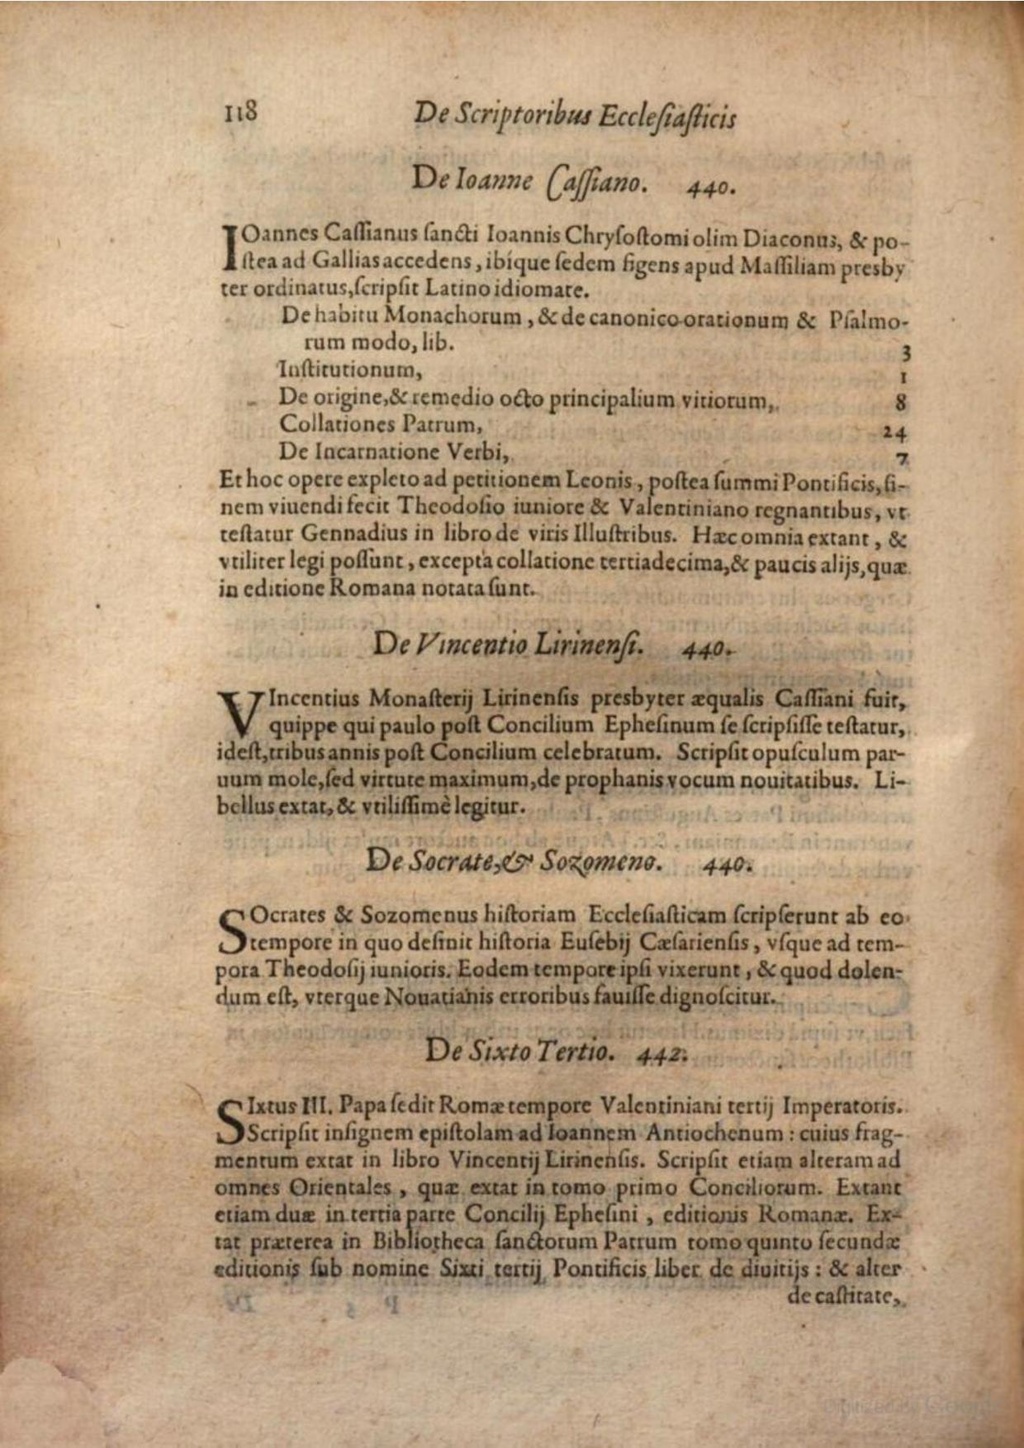 118 De Scriptoribus Ecclesiasticis
De Ioanne Cassiano. 440.
IOannes Cassianus sancti Ioannis Chrysostomi olim Diaconus, & po-
stea ad Gallias accedens, ibique sedem figens apud Massiliam presby
ter ordinatus, scripsit Latino idiomate.
De habitu Monachorum, & de canonico orationum & Psalmo-
rum modo, lib. 3
Institutionum, 1
De origine, & remedio octo principalium vitiorum, 8
Collationes Patrum, 24
De Incarnatione Verbi, 7
Et hoc opere expleto ad petitionem Leonis, postea summi Pontificis, fi-
nem viuendi fecit Theodosio iuniore & Valentiniano regnantibus, vt
testatur Gennadius in libro de viris Illustribus. Hæc omnia extant, &
vtiliter legi possunt, excepta collatione tertiadecima, & paucis alijs, quæ
in editione Romana notata sunt.
De Vincentio Lirinensi. 440.
VIncentius Monasterij Lirinensis presbyter æqualis Cassiani fuit,
quippe qui paulo post Concilium Ephesinum se scripsisse testatur,
idest, tribus annis post Concilium celebratum. Scripsit opusculum par-
uum mole, sed virtute maximum, de prophanis vocum nouitatibus. Li-
bellus extat, & vtilissimè legitur.
De Socrate, & Sozomeno. 440.
SOcrates & Sozomenus historiam Ecclesiasticam scripserunt ab eo
tempore in quo desinit historia Eusebij Cæsariensis, vsque ad tem-
pora Theodosij iunioris. Eodem tempore ipsi vixerunt, & quod dolen-
dum est, vterque Nouatianis erroribus fauisse dignoscitur.
De Sixto Tertio. 442.
SIxtus III. Papa sedit Romæ tempore Valentiniani tertij Imperatoris.
Scripsit insignem epistolam ad Ioannem Antiochenum : cuius frag-
mentum extat in libro Vincentij Lirinensis. Scripsit etiam alteram ad
omnes Orientales, quæ extat in tomo primo Conciliorum. Extant
etiam duæ in tertia parte Concilij Ephesini, editionis Romanæ. Ex-
tat præterea in Bibliotheca sanctorum Patrum tomo quinto secundæ
editionis sub nomine Sixti tertij Pontificis liber de diuitijs : & alter
de castitate,